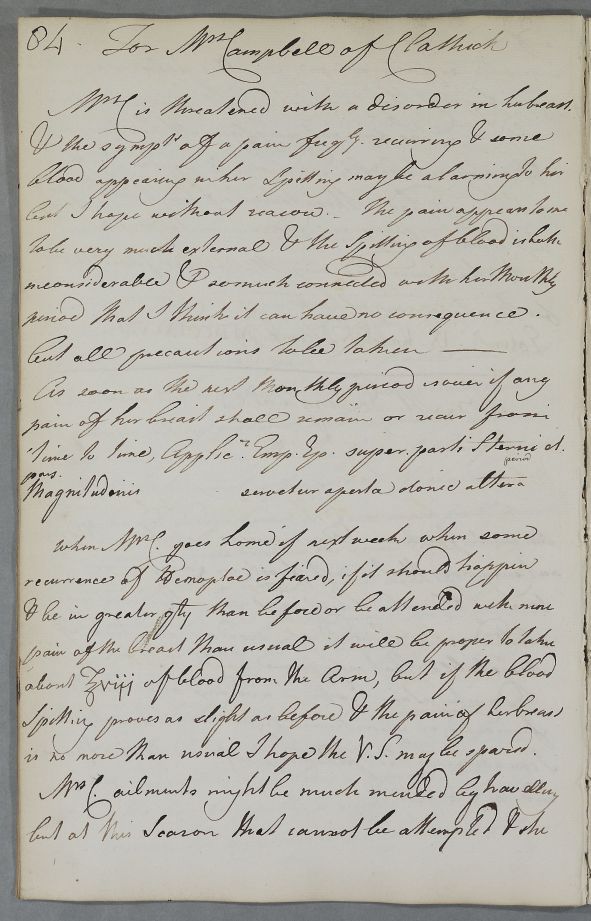 84. For Mrs Campbell of Clathick
Mrs C is threatened with a disorder in her breast.
& the sympts of a pain freqly. recurring & some
blood appearing in her Spitting may be alarming to her
but I hope without reason. - The pain appears to me
to be very much external & the Spitting of blood is both
inconsiderable & so much connected with her Monthly
period that I think it can have no consequence.
but all precautions to be taken —
As soon as the next Monthly period is over if any
pain of her breast shall remain or recur from
time to time, Applicr. Emp. Ep. super. parti Sterni d.
period
pars.
Magnitudinis servetur aperta donec altera
When Mrs C. goes home if next week when some
recurrence of Hemoptoe is feared, if it should happen
& be in greater qty than before or be attended with more
pain of the breast than usual it will be proper to take
about ℥viij of blood from the Arm, but if the blood
Spitting proves as slight as before & the pain of her breast
is no more than usual I hope the V.S. may be spared.
Mrs C. ailments might be much mended by travelling
but at this Season that cannot be attempted & she